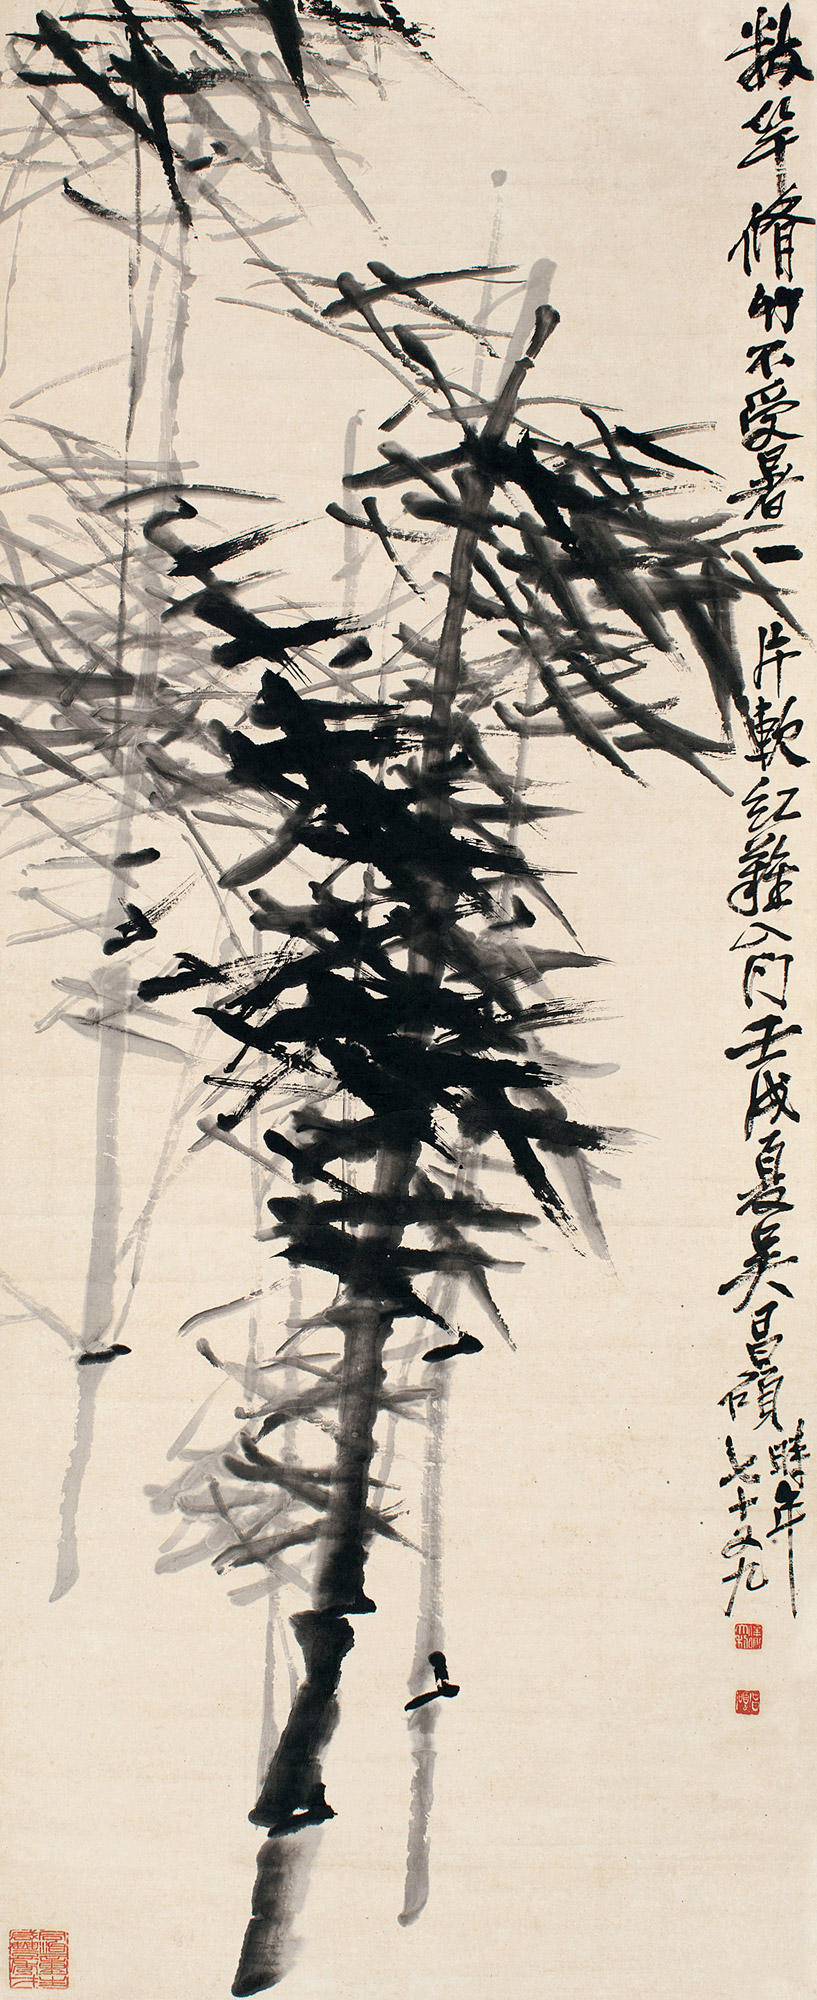 数竿脩竹不受暑一片軟紅難入門壬戌夏吳昌碩
時年
七十又九